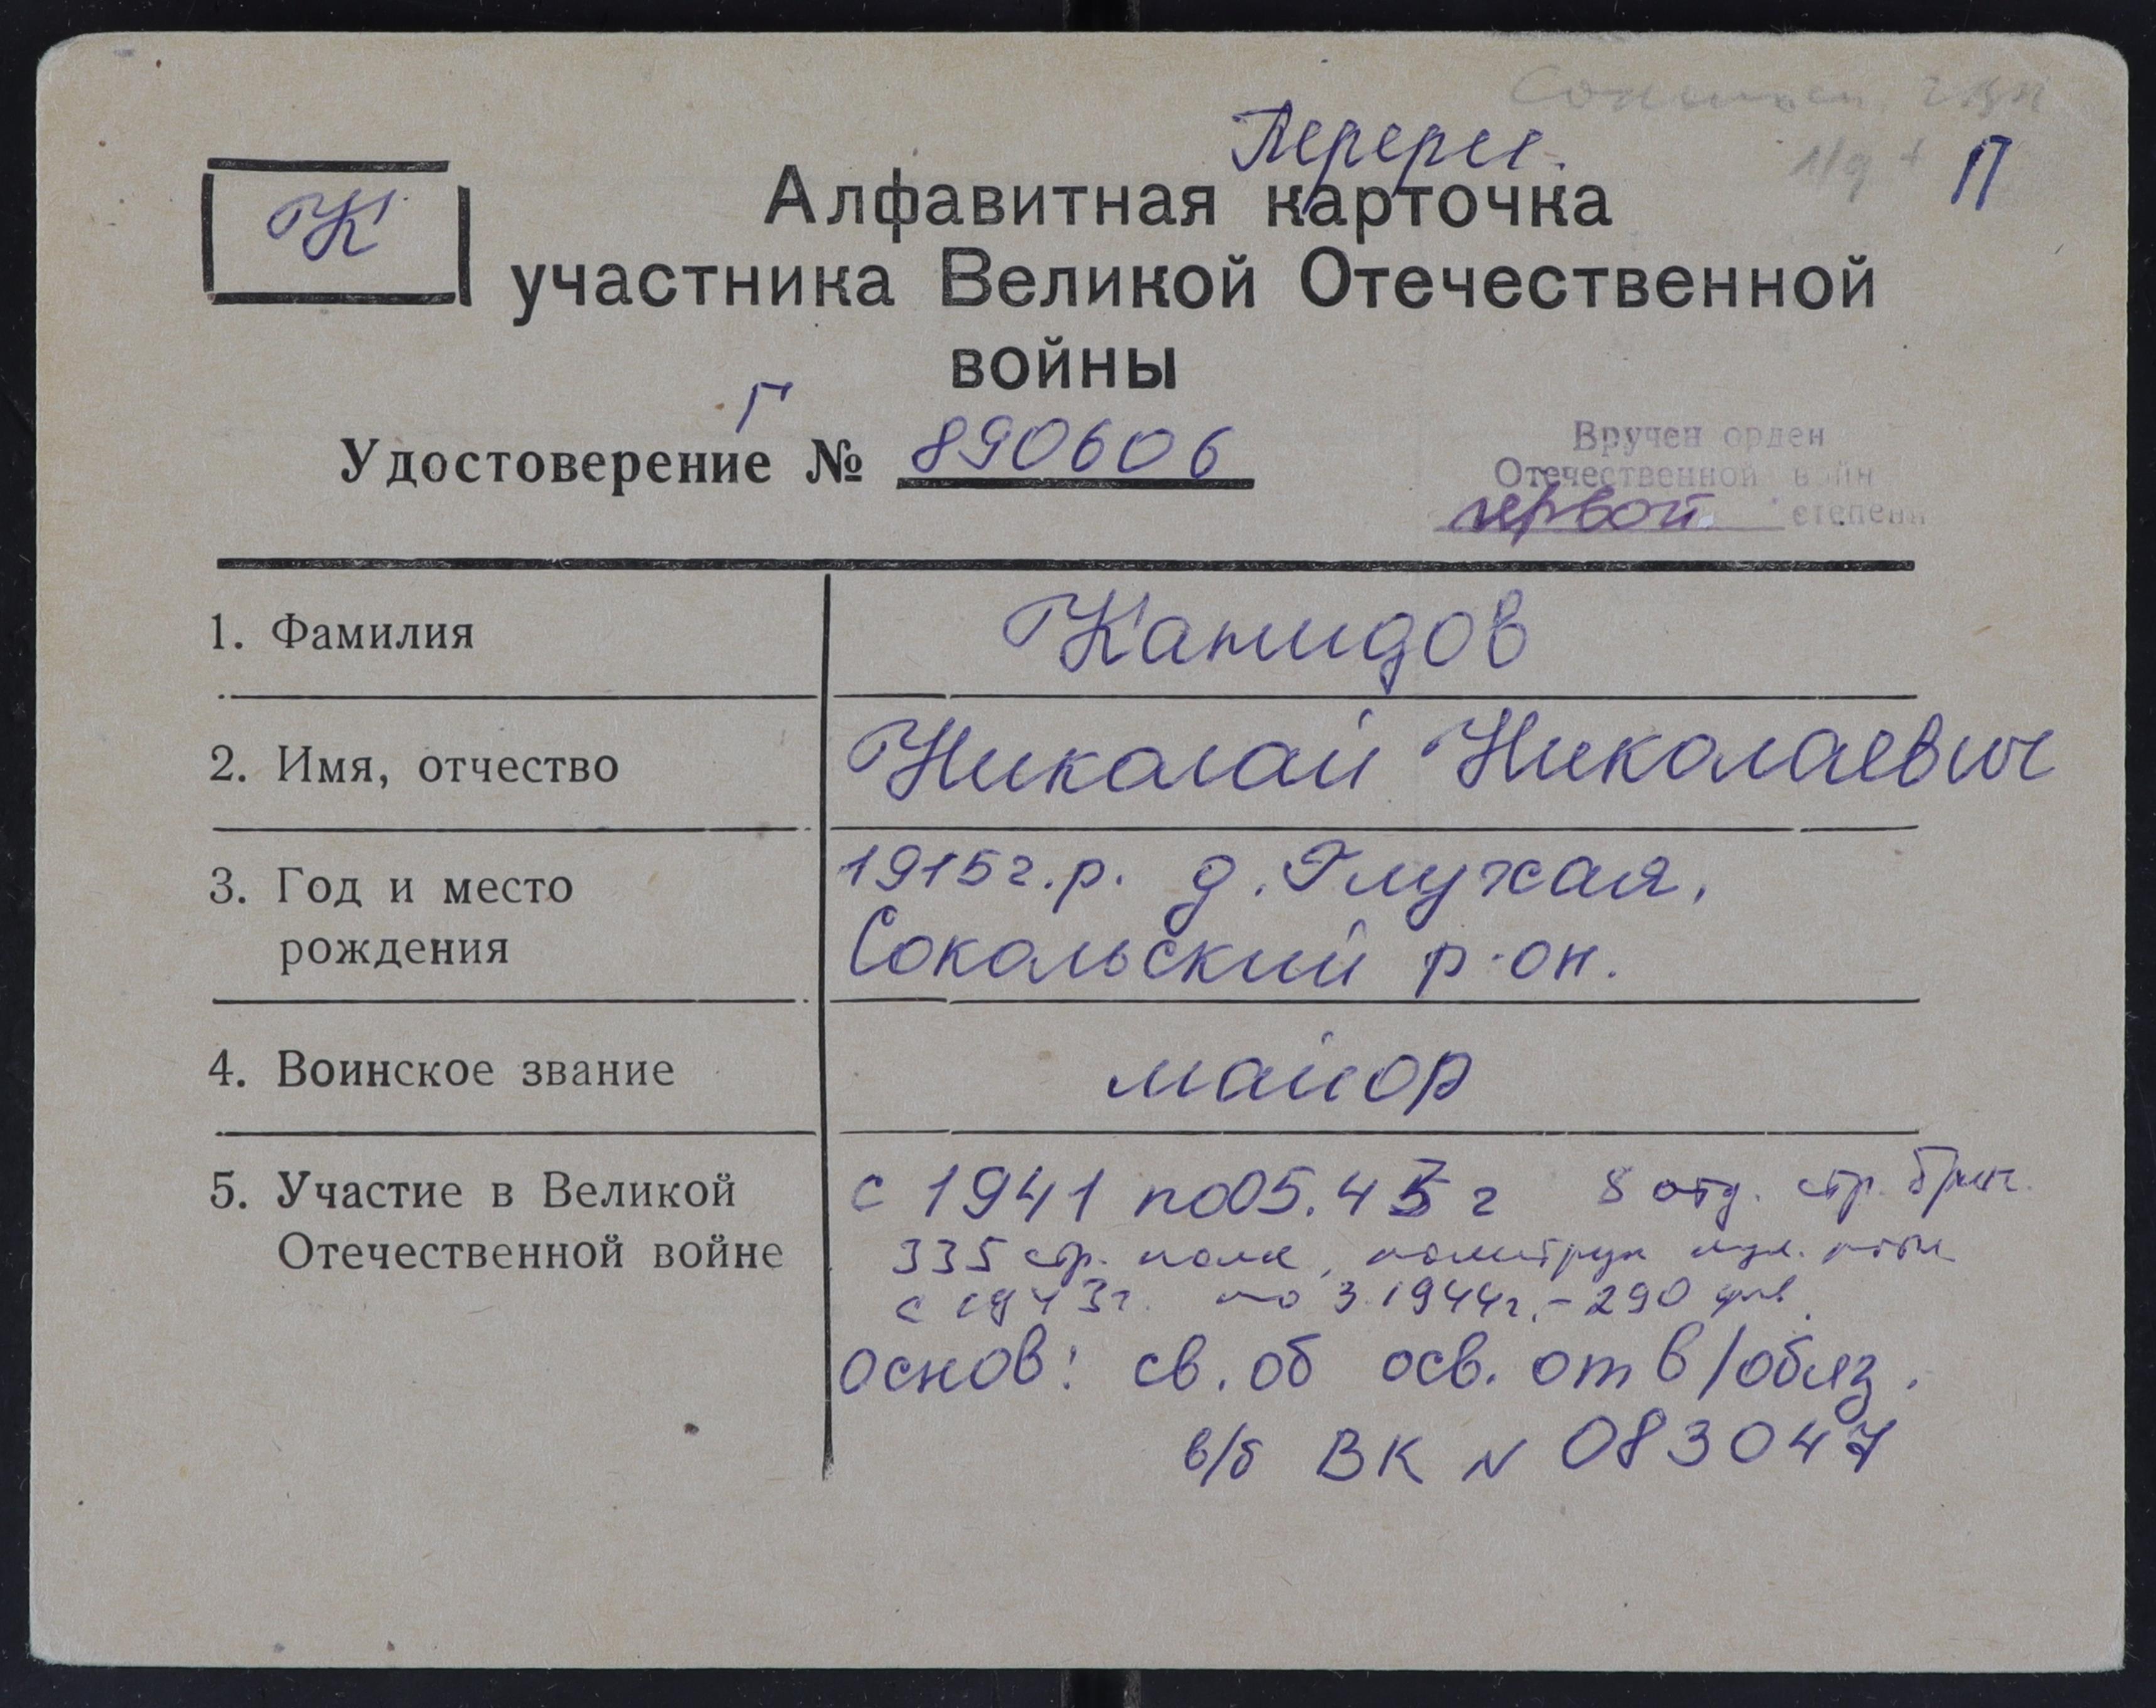 Перерег.
П
К
Алфавитная карточка
участника Великой Отечественной
войны
Г
Удостоверение № 890606
Вручен орден
Отечественной войн
первой степени
1. Фамилия Капидов
2. Имя, отчество Николай Николаевич
3. Год и место 1915 г.р. д. Глухая,
рождения Сокольский р-он.
4. Воинское звание майор
5. Участие в Великой с 1941 по 05.45 г 8 отд. стр. бриг.
Отечественной войне 335 стр. полк, политрук
с 1943г. по 3.1944г. - 290 див.
Основ: св. об осв. от в/обяз.
в/б ВК № 083047